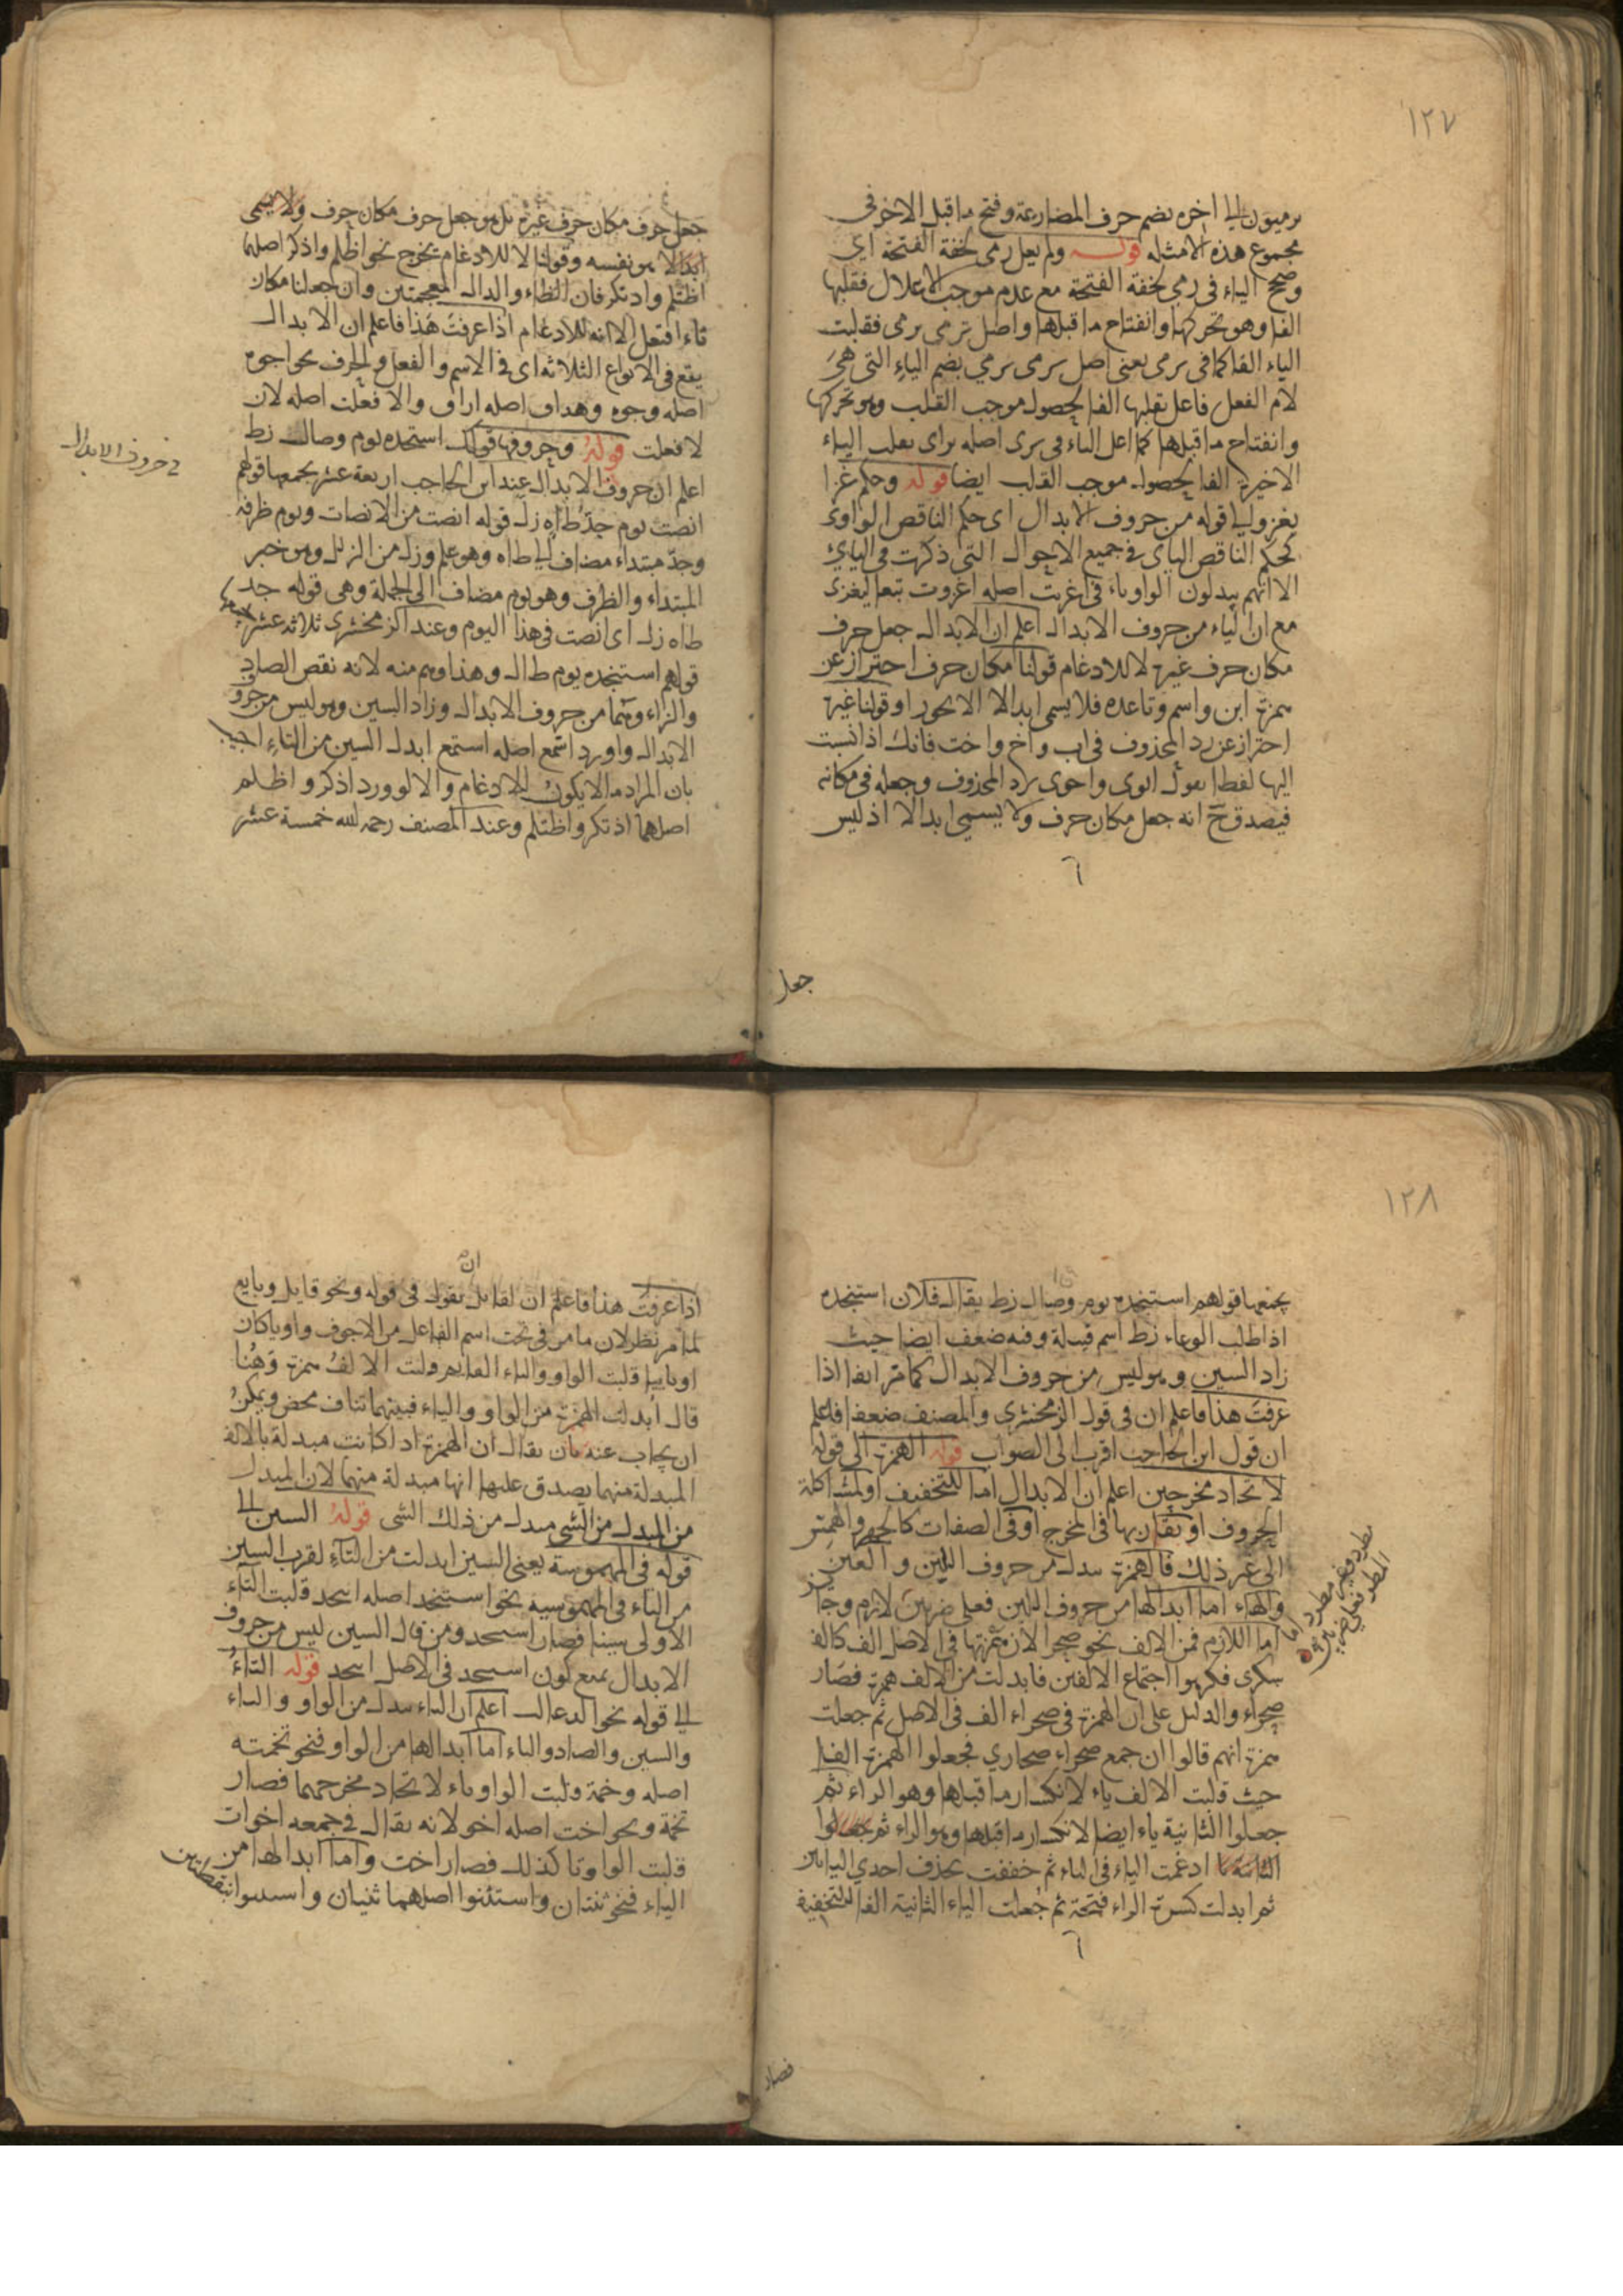 ١٢٧
يرميون الى اخره بضم حرف المضارعة وفتح ما قبل الاخر فى
مجموع هذه الامثله قوله ولم يعل رمى لخفة الفتحة اى
وصح الياء فى رمى لخفة الفتحة مع عدم موجب الاعلال فقلبها
الفا وهو تحركها وانفتاح ما قبلها واصل ترمى يرمى فقلبت
الياء الفا كما فى يرمى يعنى اصل يرمى يرمي بضم الياء التى هى
لام الفعل فاعل بقلبها الفا لحصول موجب القلب وهو تحركها
وانفتاح ما قبلها كما اعل الياء فى يرى اصله يراى بقلب الياء
الاخيرة الفا لحصول موجب القلب ايضا قوله وحكم غزا
يغزو الى قوله من حروف الابدال اى حكم الناقص الواوى
كحكم الناقص اليائ فى جميع الاحوال التى ذكرت فى اليايئ
الا انهم يبدلون الواو ياء فى اغريت اصله اغزوت تبعا ليغزى
مع ان الياء من حروف الابدال اعلم ان الابدال جعل حرف
مكان حرف غيره لا للادغام قولنا مكان حرف احتراز عن
همزة ابن واسم وتاعده فلا يسمى ابدالا الا بجوز او قولنا غيره
احتراز عن رد المحذوف فى اب واخ واخت فانك اذا نسبت
اليها لفظا تقول ابوى واخوى برد المحذوف وجعله فى مكانه
فيصدق ح انه جعل مكان حرف ولا يسمى ابدالا اذ ليس
جعل
جعل حرف مكان حرف غيره بل هو جعل حرف مكان حرف ولا يسمى
ابدالا هو نفسه وقولنا لا للادغام يخرج نحو اظلم واذكر اصلهما
اظتلم واذتكر فان الظاء والدال المعجمتين وان جعلنا مكان
تاء افتعل الا انه للادغام اذا عرفت هذا فاعلم ان الابدال
يقع فى الانواع الثلاثه اى فى الاسم والفعل والحرف نحو اجوه
اصله وجوه وهراق اصله اراق والا فعلت اصله لان
لا فعلت قوله وحروفها قولك استنجده يوم وصال زط
فى حروف الابدال
اعلم ان حروف الابدال عند ابن الحاجب اربعة عشر يجمعها قولهم
انصت يوم جد طاه زل قوله انصت من الانصات ويوم ظرفه
وجد مبتداء مضاف الى طاه وهو علم وزل من الزلل وهو خبر
المبتداء والظرف وهو يوم مضاف الى الجملة وهى قوله جد
طاه زل اى انصت فى هذا اليوم وعند الزمخشرى ثلاثه عشر يجمعها
قولهم استنجده يوم طال وهذا وهم منه لانه نقص الصاد
والزاء وهما من حروف الابدال وزاد السين وهو ليس من حروف
الابدال واورد اسمع اصله استمع ابدل السين من التاء اجيب
بان المراد ما لا يكون للادغام والا لورد اذكر واظلم
اصلهما اذتكر واظتلم وعند المصنف رحمه الله خمسة عشر
١٢٨
يجمعها قولهم استنجده يوم وصال زط يقال فلان استنجده
اذا طلب الوعاء زط اسم قبيلة وفيه ضعف ايضا حيث
زاد السين وهو ليس من حروف الابدال كما مر انفا اذا
عرفت هذا فاعلم ان فى قول الزمخشرى والمصنف ضعفا فاعلم
ان قول ابن الحاجب اقرب الى الصواب قوله الهمزة الى قوله
لاتحاد مخرجين اعلم ان الابدال اما للتخفيف او لمشاكلة
الحروف او تقاربها فى المخرج او فى الصفات كالجهر والهمس
الى غير ذلك فالهمزة تبدل من حروف اللين والعين
والهاء اما ابدالها من حروف اللين فعلى ضربين لازم وجائز
اما اللازم فمن الالف نحو صحرا لان همزتها فى الاصل الف كالف
سكرى فكرهوا اجتماع الالفين فابدلت من الالف همزة فصار
صحراء والدليل على ان الهمزة فى صحراء الف فى الاصل ثم جعلت
همزة انهم قالوا ان جمع صحراء صحاري فجعلوا الهمزة الفا
حيث قلبت الالف ياء لانكسار ما قبلها وهو الراء ثم
جعلوا الثانية ياء ايضا لانكسار ما قبلها وهو الراء ثم جعلوا
ادغمت الياء فى الياء ثم خففت بحذف احدي اليائين
ثم ابدلت كسرة الراء فتحة ثم جعلت الياء الثانية الفا للتخفيف
مطرد وغير مطرد اما
المطرد فعلى ضربين
فصار
اذا عرفت هذا فاعلم ان لقائل ان يقول فى قوله ونحو قايل وبايع
لما مر نظر لان ما مر فى بحث اسم الفاعل من الاجوف واويا كان
او يائيا قلبت الواو والياء الفا ثم قلبت الالف همزة وهنا
قال ابدلت الهمزة من الواو والياء فبينهما تناف محض ويمكن
ان يجاب عنه بان يقال ان الهمزة اذا كانت مبدلة بالالف
المبدلة منهما يصدق عليها انها مبدلة منهما لان المبدل
من المبدل من الشى مبدل من ذلك الشى قوله السين الى
قوله فى المهموسة يعنى السين ابدلت من التاء لقرب السين
من التاء فى المهموسيه نحو استخذ اصله اتخذ قلبت التاء
الاولى سينا فصار استخذ ومن قال السين ليس من حروف
الابدال يمنع كون استخذ فى الاصل اتخذ قوله التاء
الى قوله نحو الدعالت اعلم ان التاء تبدل من الواو والياء
والسين والصاد والباء اما ابدالها من الواو فنحو تخمته
اصله وخمة قلبت الواو تاء لاتحاد مخرجهما فصار
تخمة ونحو اخت اصله اخو لانه يقال فى جمعه اخوات
قلبت الواو تا كذلك فصار اخت واما ابدالها من
الياء فنحو ثنتان واستنوا اصلهما ثنيان واسنيوا بنقطتين